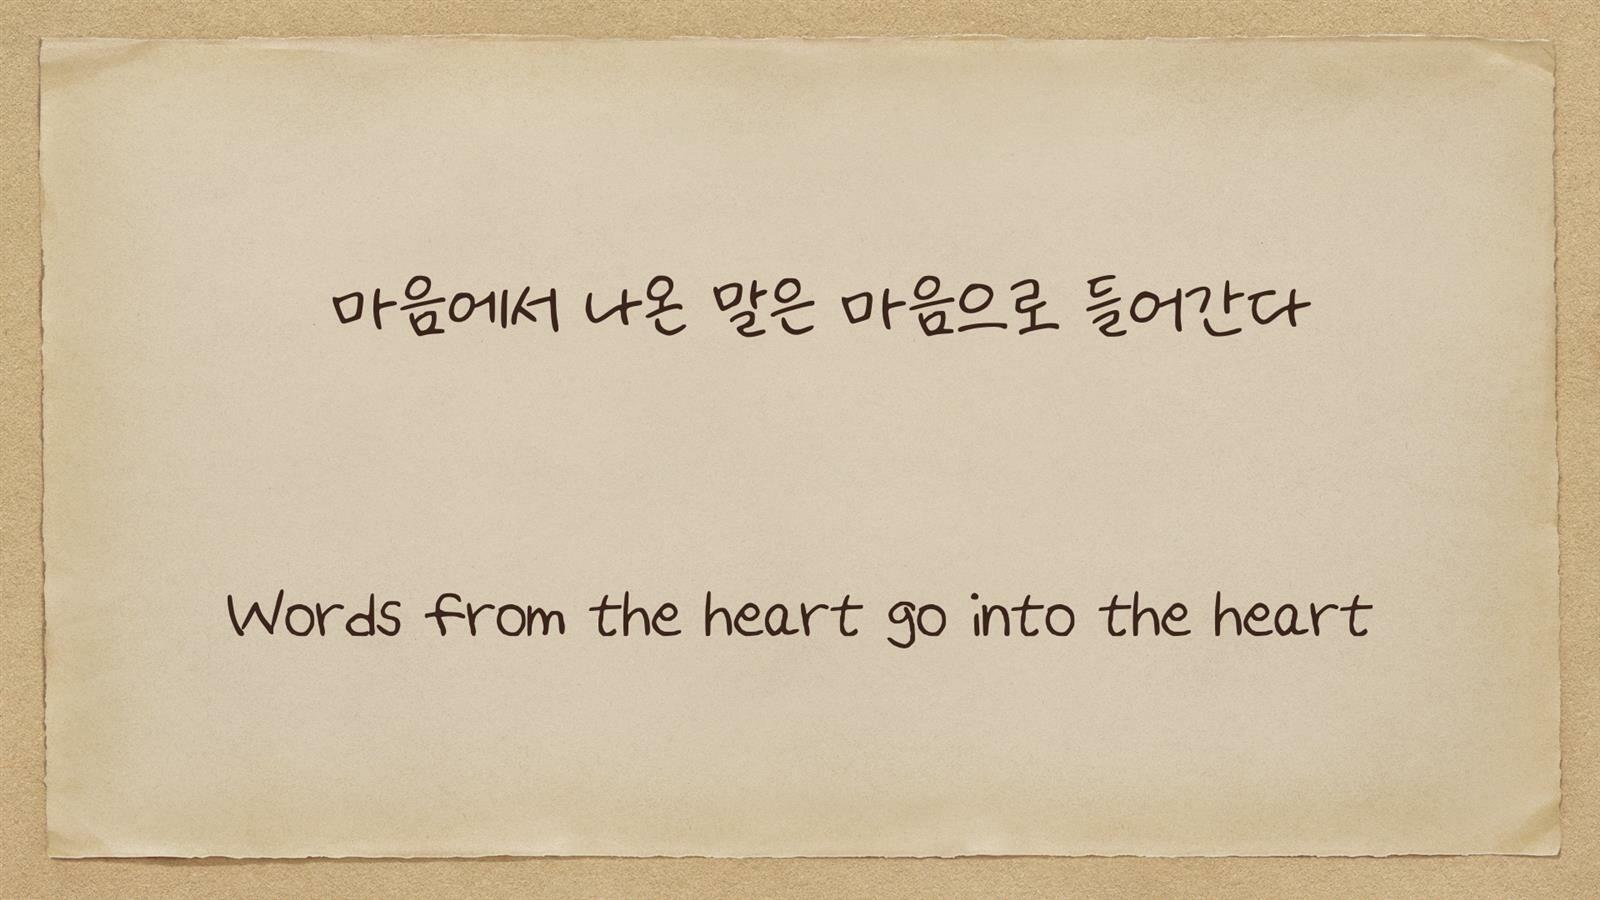 마음에서 나온 말은 마음으로 들어간다
Words from the heart go into the heart